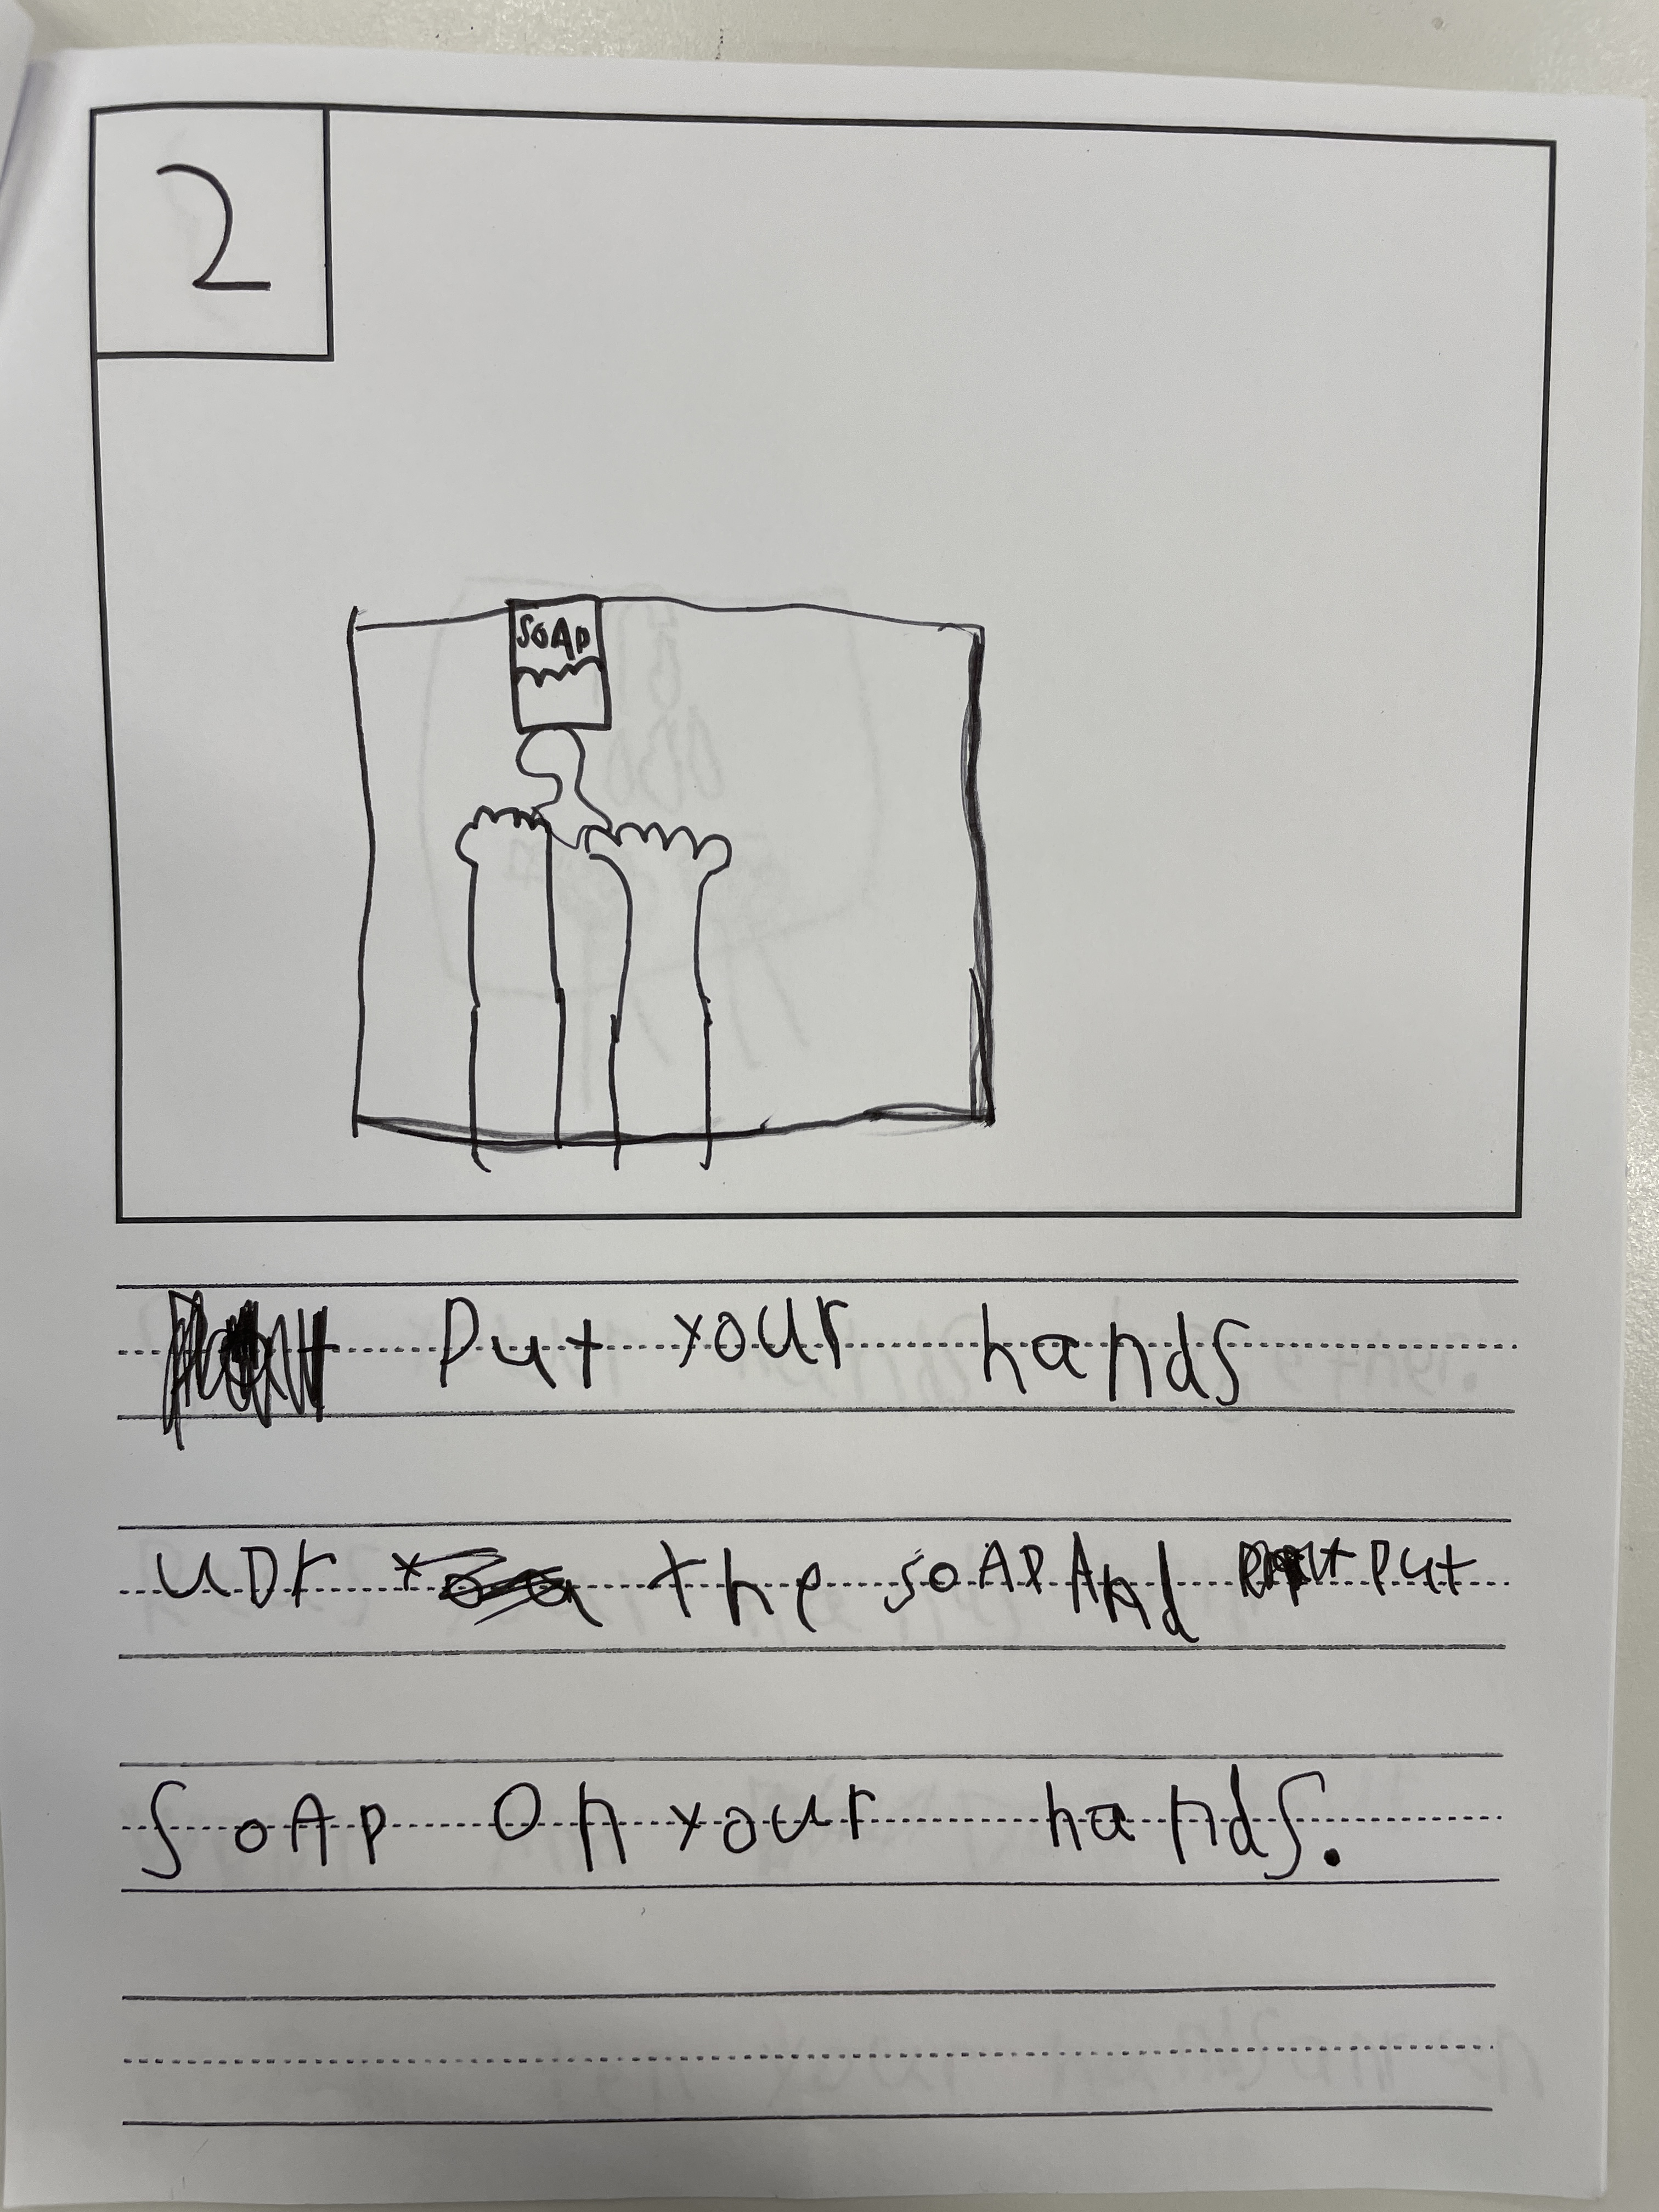 2
SOAp
Put your hands
uDr the soAP And put
SoAp On your hands.